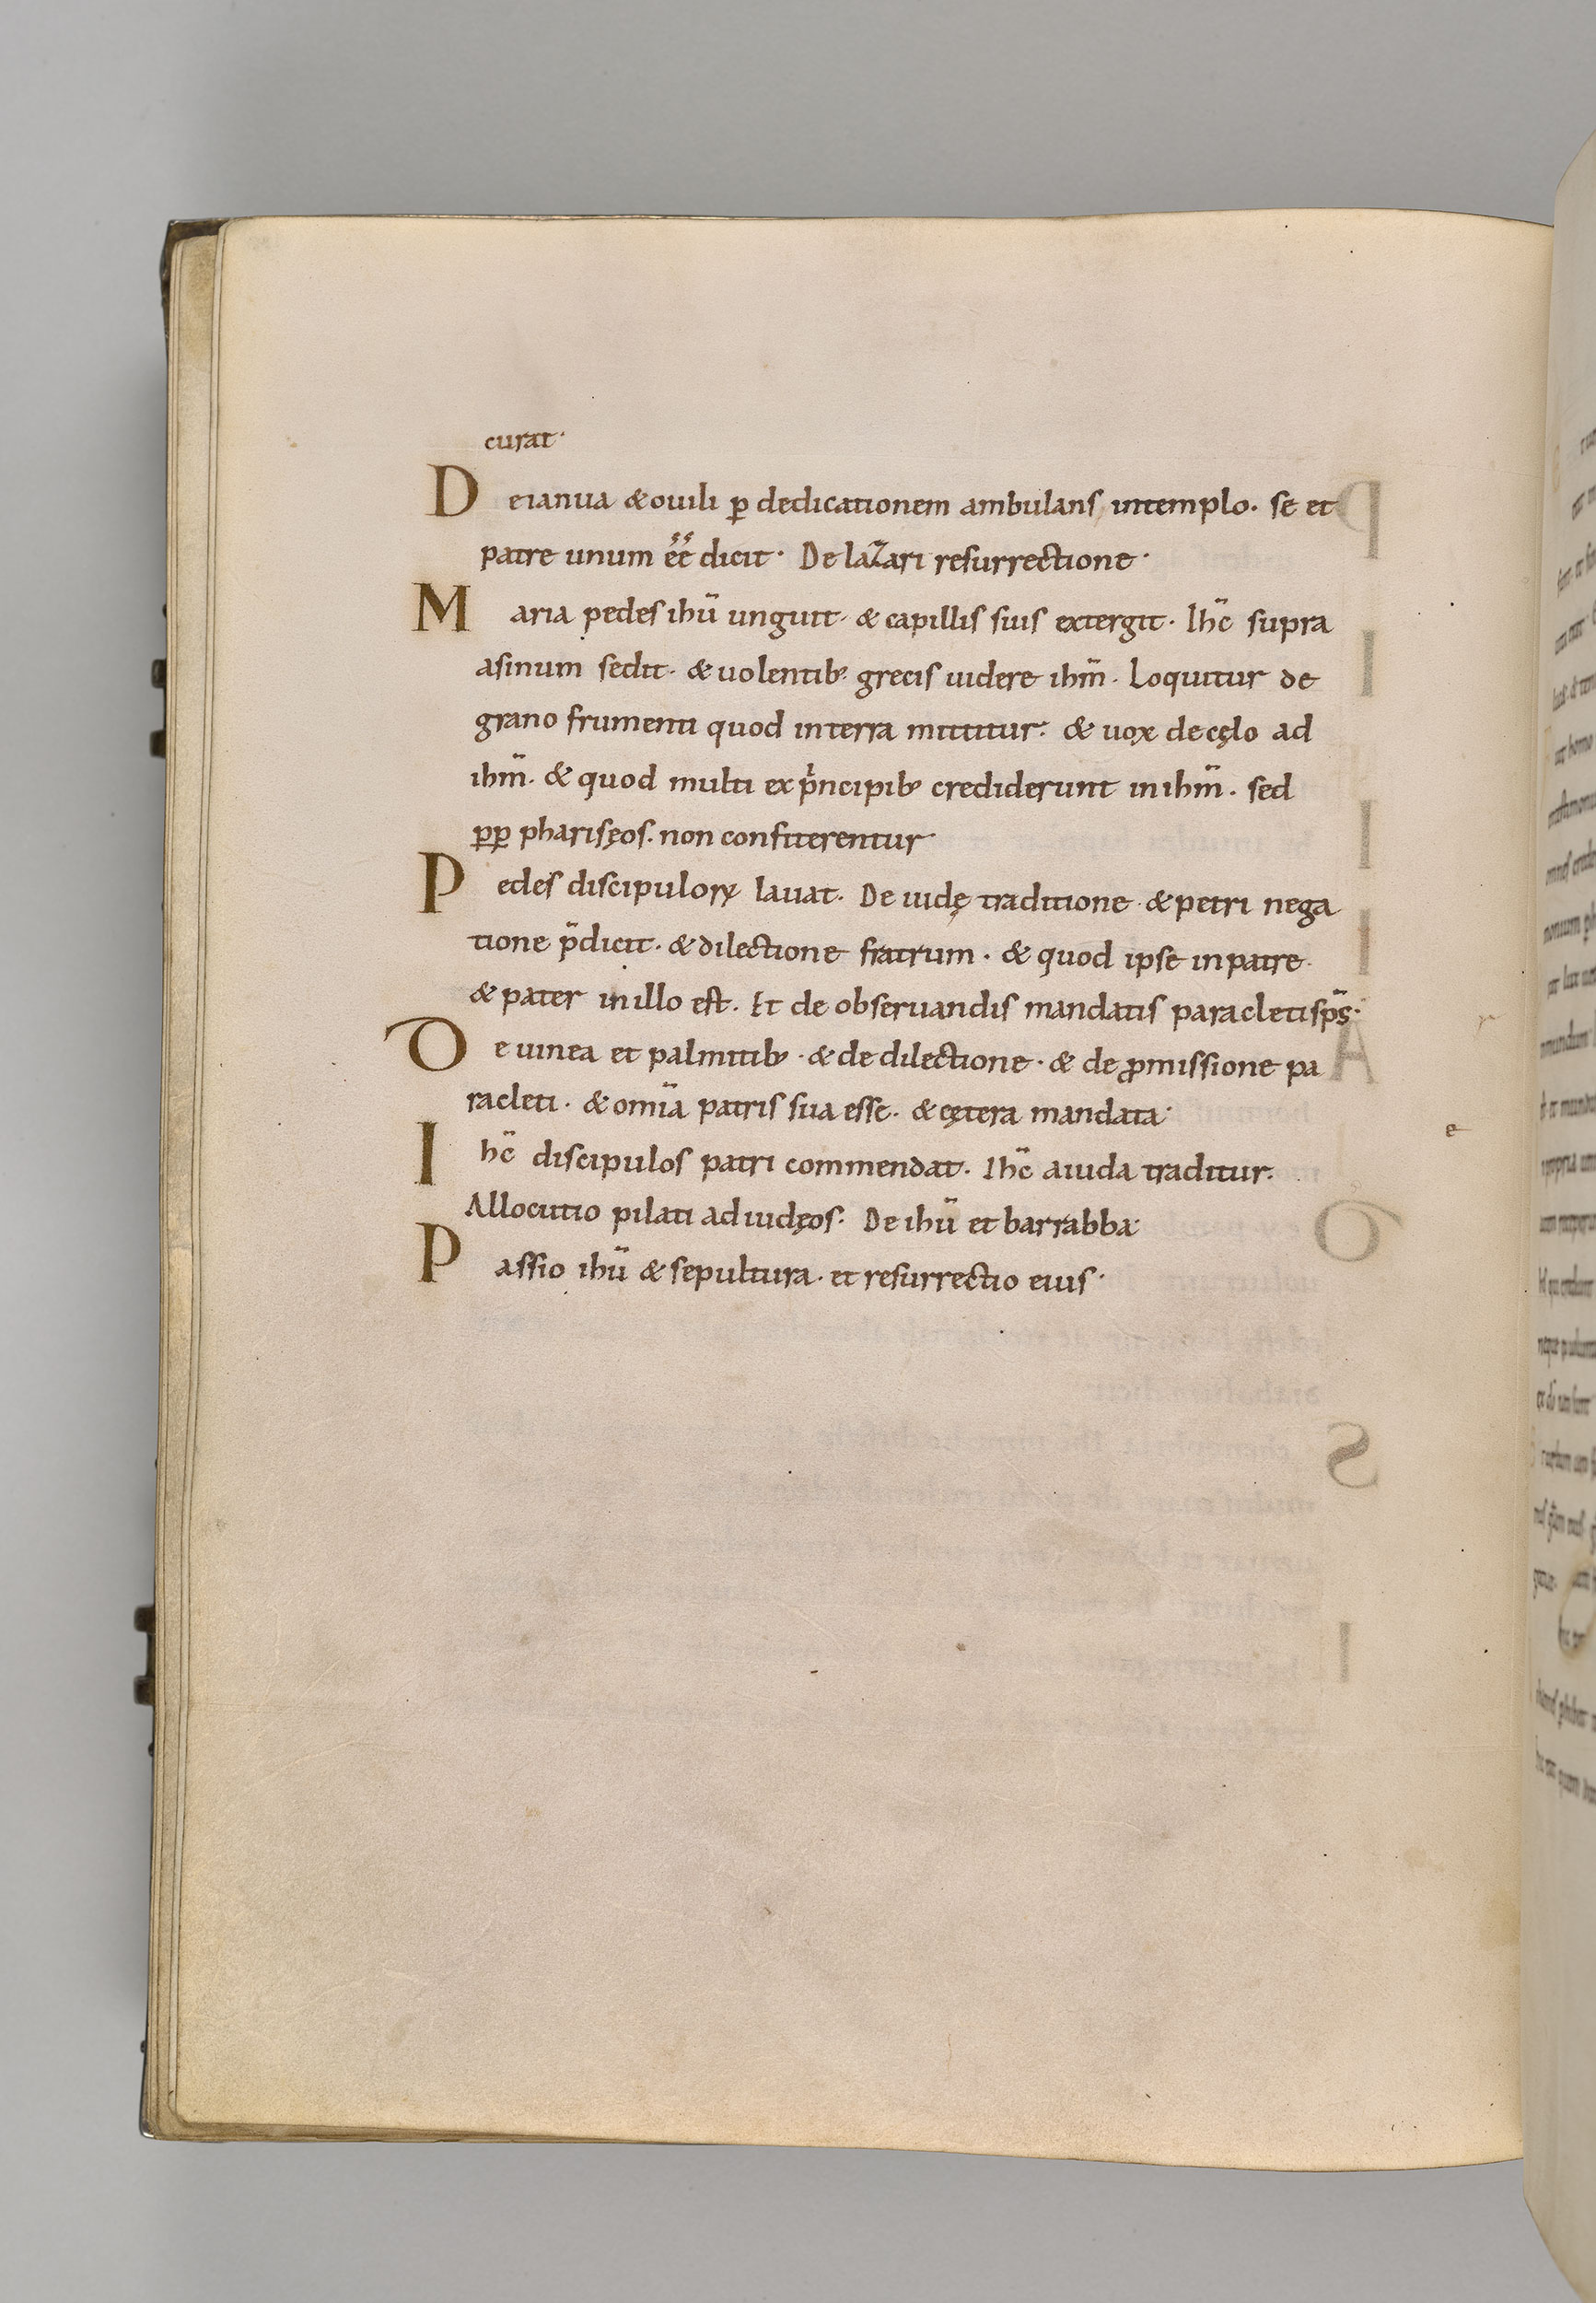 curat·
De ianua & ouili ꝑ dedicationem ambulans in templo. se et
patre unum ēē dicit· De lazari resurrectione·
Maria pedes ihū unguit· & capillis suis extergit· Ihc̄ supra
asinum sedit· & uolentib; grecis uidere ihm̄· Loquitur de
grano frumenti quod in terra mittitur· & uox de cęlo ad
ihm̄· & quod multi ex pͥncipib; crediderunt in ihm̄. sed
ꝑꝑ pharisęos. non confiterentur·
Pedes discipuloꝝ lauat. De iudę traditione & petri nega
tione p̄dicit· & dilectione fratrum· & quod ipse in patre
& pater in illo est. Et de obseruandis mandatis paracleti sp̄s·
De uinea et palmitib; · & de dilectione· & de ꝓmissione pa
racleti· & omīa patris sua esse· & cętera mandata·
Ihc̄ discipulos patri commendat. Ihc̄ a iuda traditur.
Allocutio pilati ad iudęos· De ihū et barrabba·
Passio ihū & sepultura· et resurrectio eius·